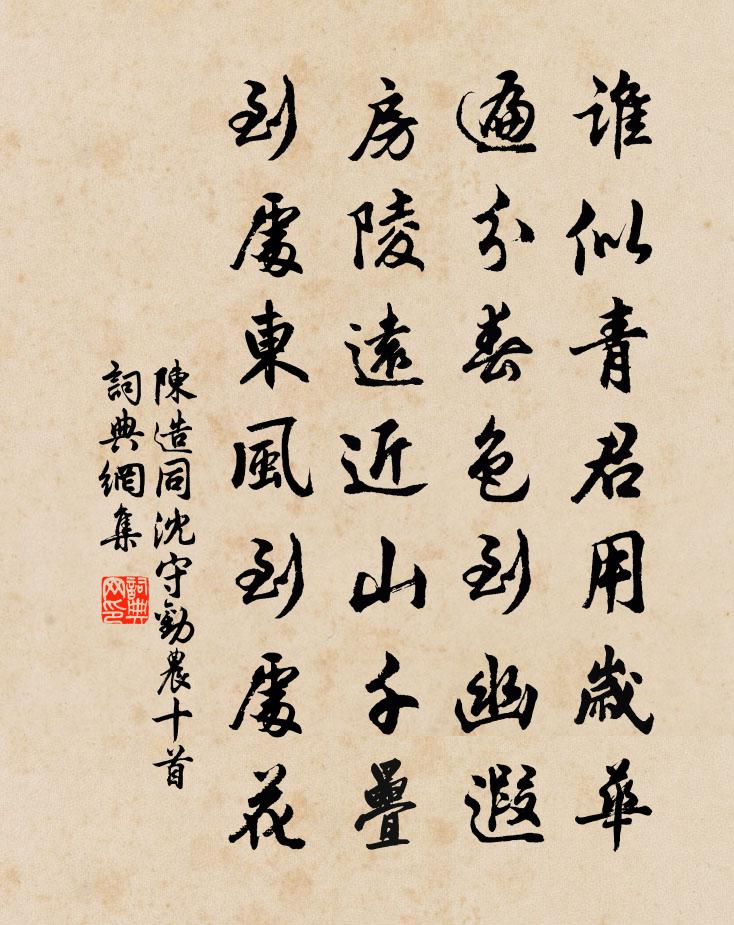 誰似青君用歲華
遍分春色到幽遐
房陵遠近山千疊
到處東風到處花
陳造同沈守勸農十首
詞典網集
詞典網印